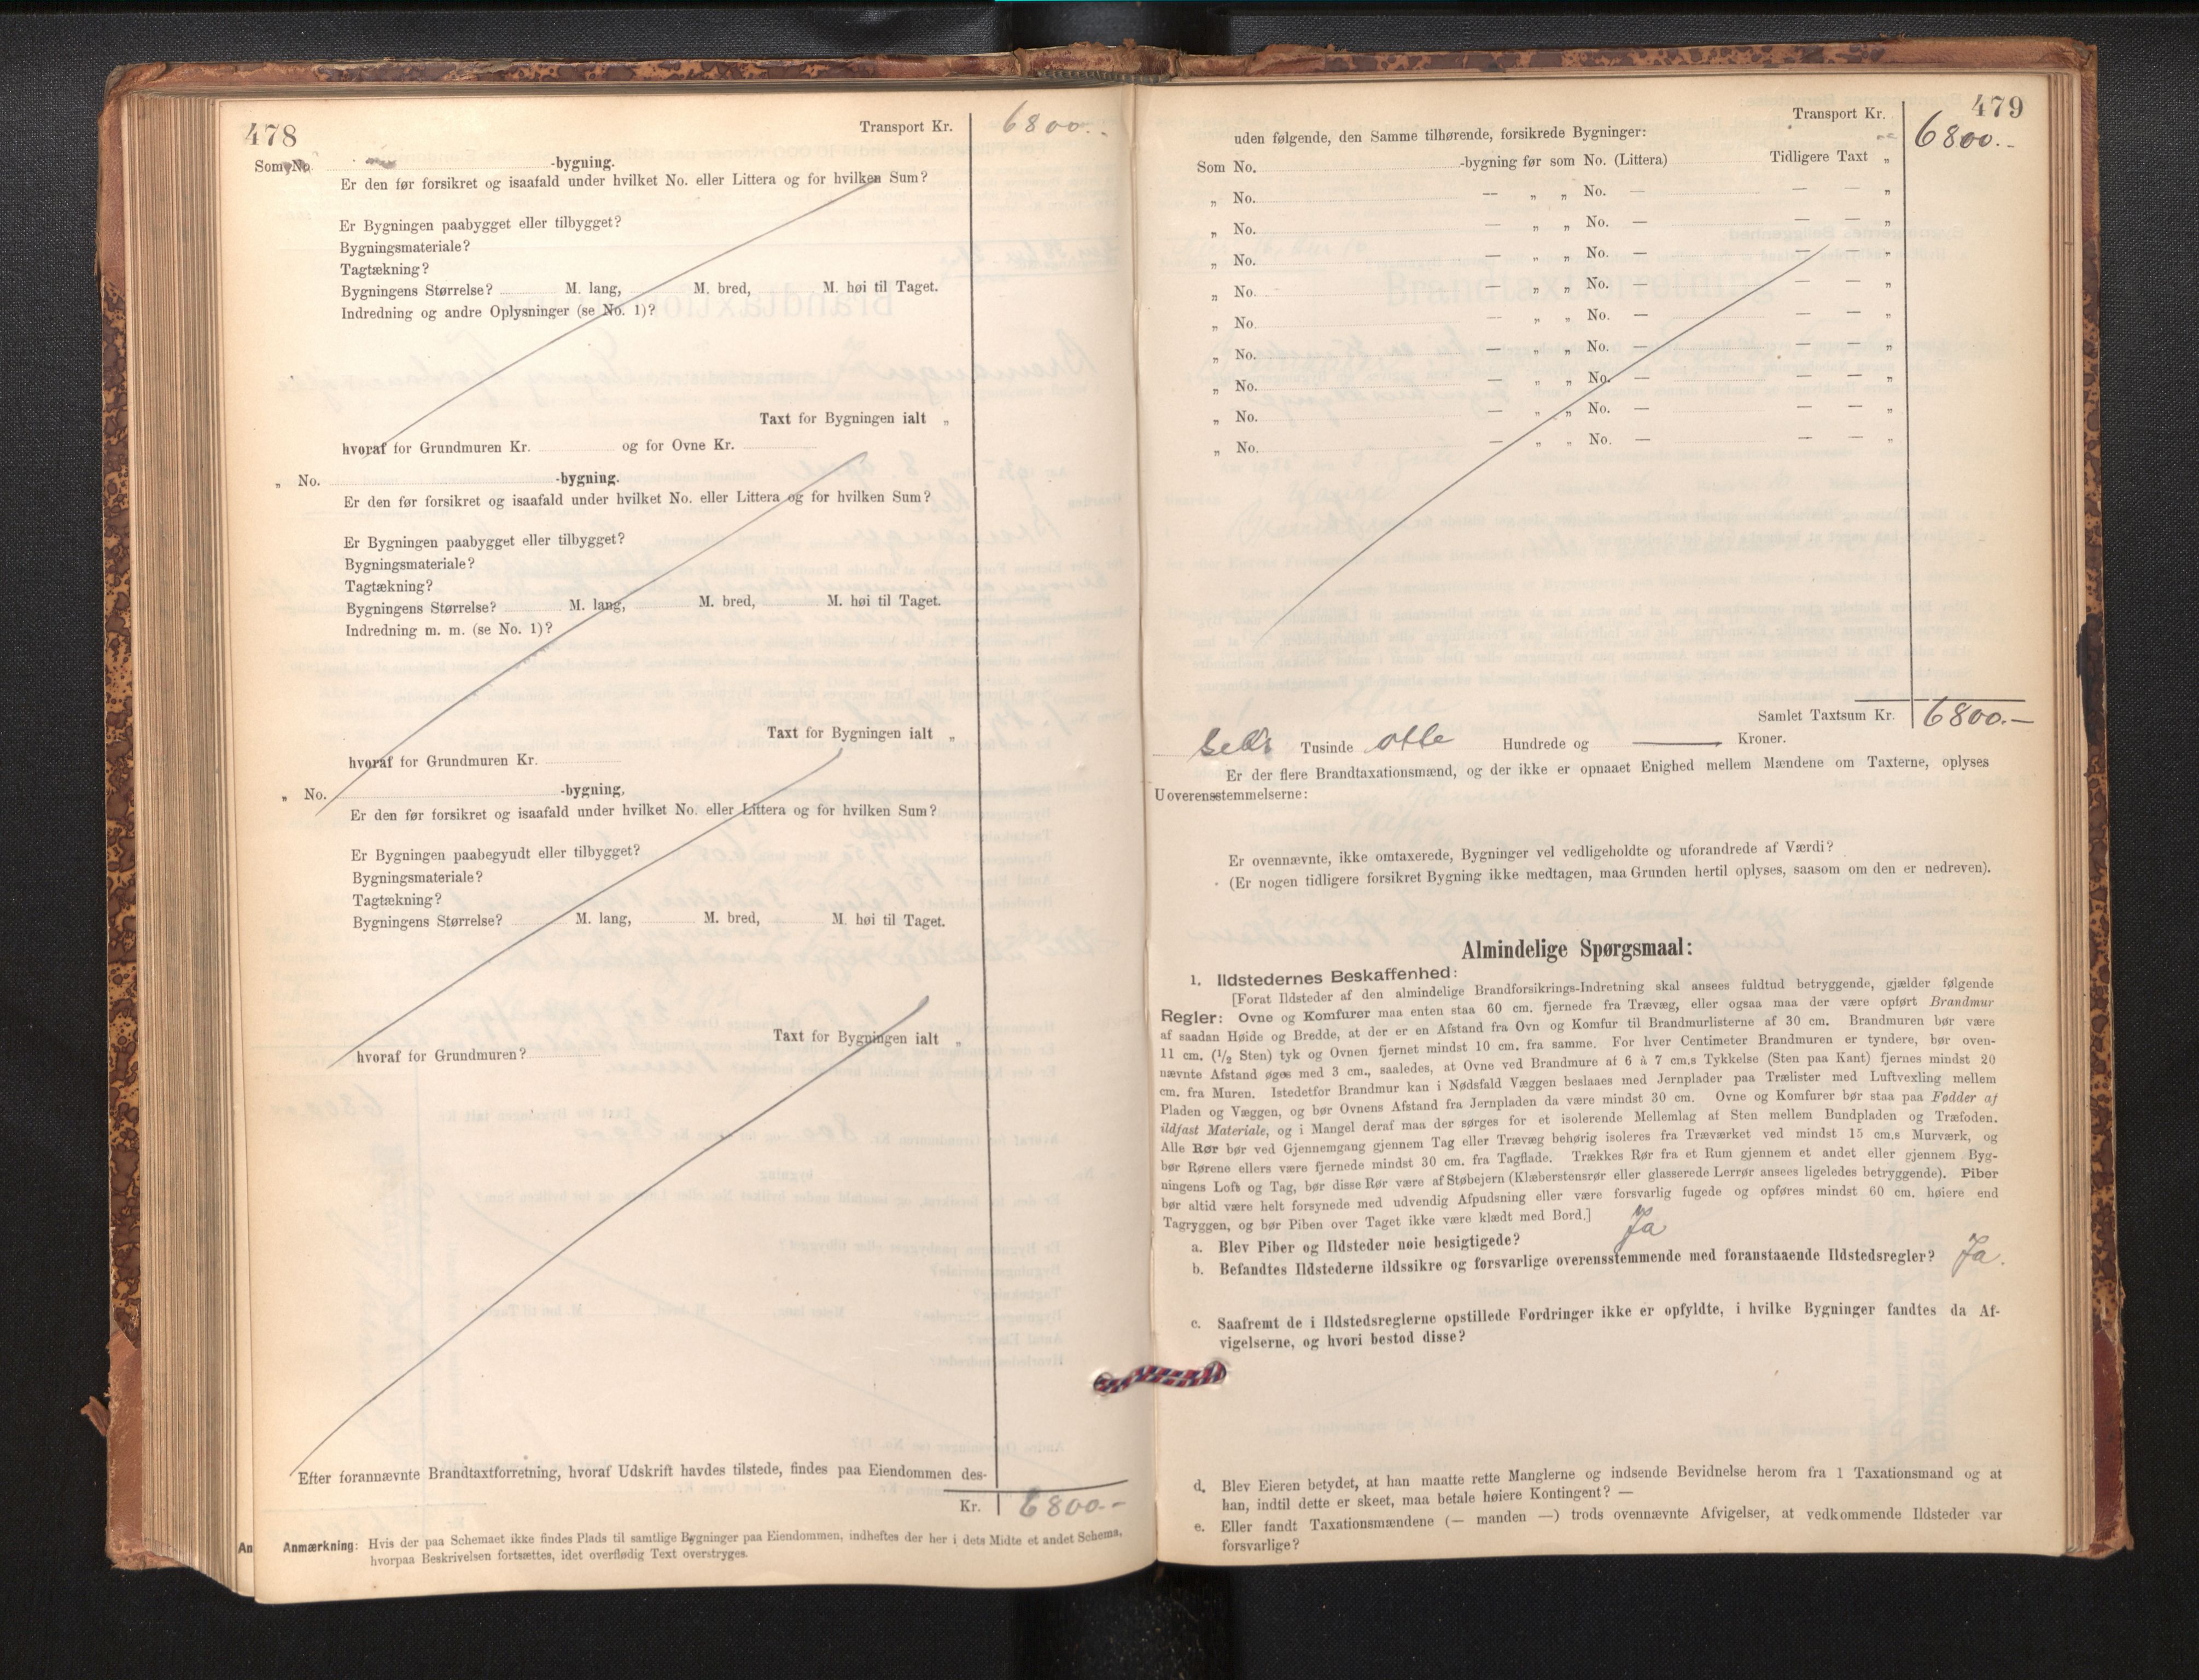 478
Transport Kr. 6800.-
Som No. -bygning.
Er den før forsikret og isaafald under hvilket No. eller Littera og for hvilken Sum?
Er Bygningen paabygget eller tilbygget?
Bygningsmateriale?
Tagtækning?
Bygningens Størrelse? M. lang, M. bred, M. høi til Taget.
Indredning og andre Oplysninger (se No. 1)?
Taxt for Bygningen ialt „
hvoraf for Grundmuren Kr. og for Ovne Kr.
„ No. -bygning.
Er den før forsikret og isaafald under hvilket No. eller Littera og for hvilken Sum?
Er Bygningen paabygget eller tilbygget?
Bygningsmateriale?
Tagtækning?
Bygningens Størrelse? M. lang, M. bred, M. høi til Taget.
Indredning m. m. (se No. 1)?
Taxt for Bygningen ialt „
hvoraf for Grundmuren Kr.
„ No. -bygning.
Er den før forsikret og isaafald under hvilket No. eller Littera og for hvilken Sum?
Er Bygningen paabegyudt eller tilbygget?
Bygningsmateriale?
Tagtækning?
Bygningens Størrelse? M. lang, M. bred, M. høi til Taget.
Taxt for Bygningen ialt „
hvoraf for Grundmuren?
Efter forannævnte Brandtaxtforretning, hvoraf Udskrift havdes tilstede, findes paa Eiendommen des-
Kr. 6800.-
An
Anmærkning: Hvis der paa Schemaet ikke findes Plads til samtlige Bygninger paa Eiendommen, indheftes der her i dets Midte et andet Schema,
hvorpaa Beskrivelsen fortsættes, idet overflødig Text overstryges.
479
Transport Kr. 6800.-
uden følgende, den Samme tilhørende, forsikrede Bygninger:
Som No. -bygning før som No. (Littera) Tidligere Taxt „
„ No. — „ „ No. — — — „
„ No. — „ „ No. — — — „
„ No. — „ „ No. — — — „
„ No. — „ „ No. — — — „
„ No. — „ „ No. — — — „
„ No. — „ „ No. — — — „
„ No. — „ „ No. — — — „
„ No. — „ „ No. — — — „
„ No. — „ „ No. — — — „
Samlet Taxtsum Kr. 6800.-
Seks Tusinde otte Hundrede og — Kroner.
Er der flere Brandtaxationsmænd, og der ikke er opnaaet Enighed mellem Mændene om Taxterne, oplyses
Uoverensstemmelserne:
Er ovennævnte, ikke omtaxerede, Bygninger vel vedligeholdte og uforandrede af Værdi?
(Er nogen tidligere forsikret Bygning ikke medtagen, maa Grunden hertil oplyses, saasom om den er nedreven).
Almindelige Spørgsmaal:
1. Ildstedernes Beskaffenhed:
[Forat Ildsteder af den almindelige Brandforsikrings-Indretning skal ansees fuldtud betryggende, gjælder følgende
Regler: Ovne og Komfurer maa enten staa 60 cm. fjernede fra Trævæg, eller ogsaa maa der være opført Brandmur
af saadan Høide og Bredde, at der er en Afstand fra Ovn og Komfur til Brandmurlisterne af 30 cm. Brandmuren bør være
11 cm. (1/2 Sten) tyk og Ovnen fjernet mindst 10 cm. fra samme. For hver Centimeter Brandmuren er tyndere, bør oven-
nævnte Afstand øges med 3 cm., saaledes, at Ovne ved Brandmure af 6 à 7 cm.s Tykkelse (Sten paa Kant) fjernes mindst 20
cm. fra Muren. Istedetfor Brandmur kan i Nødsfald Væggen beslaaes med Jernplader paa Trælister med Luftvexling mellem
Pladen og Væggen, og bør Ovnens Afstand fra Jernpladen da være mindst 30 cm. Ovne og Komfurer bør staa paa Fødder af
ildfast Materiale, og i Mangel deraf maa der sørges for et isolerende Mellemlag af Sten mellem Bundpladen og Træfoden.
Alle Rør bør ved Gjennemgang gjennem Tag eller Trævæg behørig isoleres fra Træværket ved mindst 15 cm.s Murværk, og
bør Rørene ellers være fjernede mindst 30 cm. fra Tagflade. Trækkes Rør fra et Rum gjennem et andet eller gjennem Byg-
ningens Loft og Tag, bør disse Rør være af Støbejern (Klæberstensrør eller glasserede Lerrør ansees ligeledes betryggende). Piber
bør altid være helt forsynede med udvendig Afpudsning eller være forsvarlig fugede og opføres mindst 60 cm. høiere end
Tagryggen, og bør Piben over Taget ikke være klædt med Bord.]
a. Blev Piber og Ildsteder nøie besigtigede? Ja
b. Befandtes Ildstederne ildssikre og forsvarlige overensstemmende med foranstaaende Ildstedsregler? Ja.
c. Saafremt de i Ildstedsreglerne opstillede Fordringer ikke er opfyldte, i hvilke Bygninger fandtes da Af-
vigelserne, og hvori bestod disse?
d. Blev Eieren betydet, at han maatte rette Manglerne og indsende Bevidnelse herom fra 1 Taxationsmand og at
han, indtil dette er skeet, maa betale høiere Kontingent? —
e. Eller fandt Taxationsmændene (— manden —) trods ovennævnte Afvigelser, at vedkommende Ildsteder var
forsvarlige?